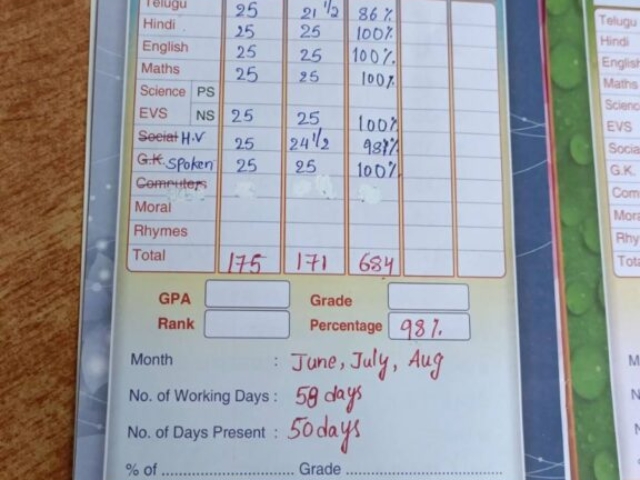 Telugu 25 21 1/2 86%
Hindi 25 25 100%
English 25 25 100%
Maths 25 25 100%
Science PS
EVS NS 25 25 100%
Social H.V 25 24 1/2 98%
G.K. Spoken 25 25 100%
Computers
Moral
Rhymes
Total 175 171 684
GPA Grade
Rank Percentage 98%
Month : June, July, Aug
No. of Working Days : 58 days
No. of Days Present : 50 days
% of ........................ Grade ........................
Telugu
Hindi
English
Maths
Science
EVS
Socia
G.K.
Com
Mora
Rhy
Tota
M
N